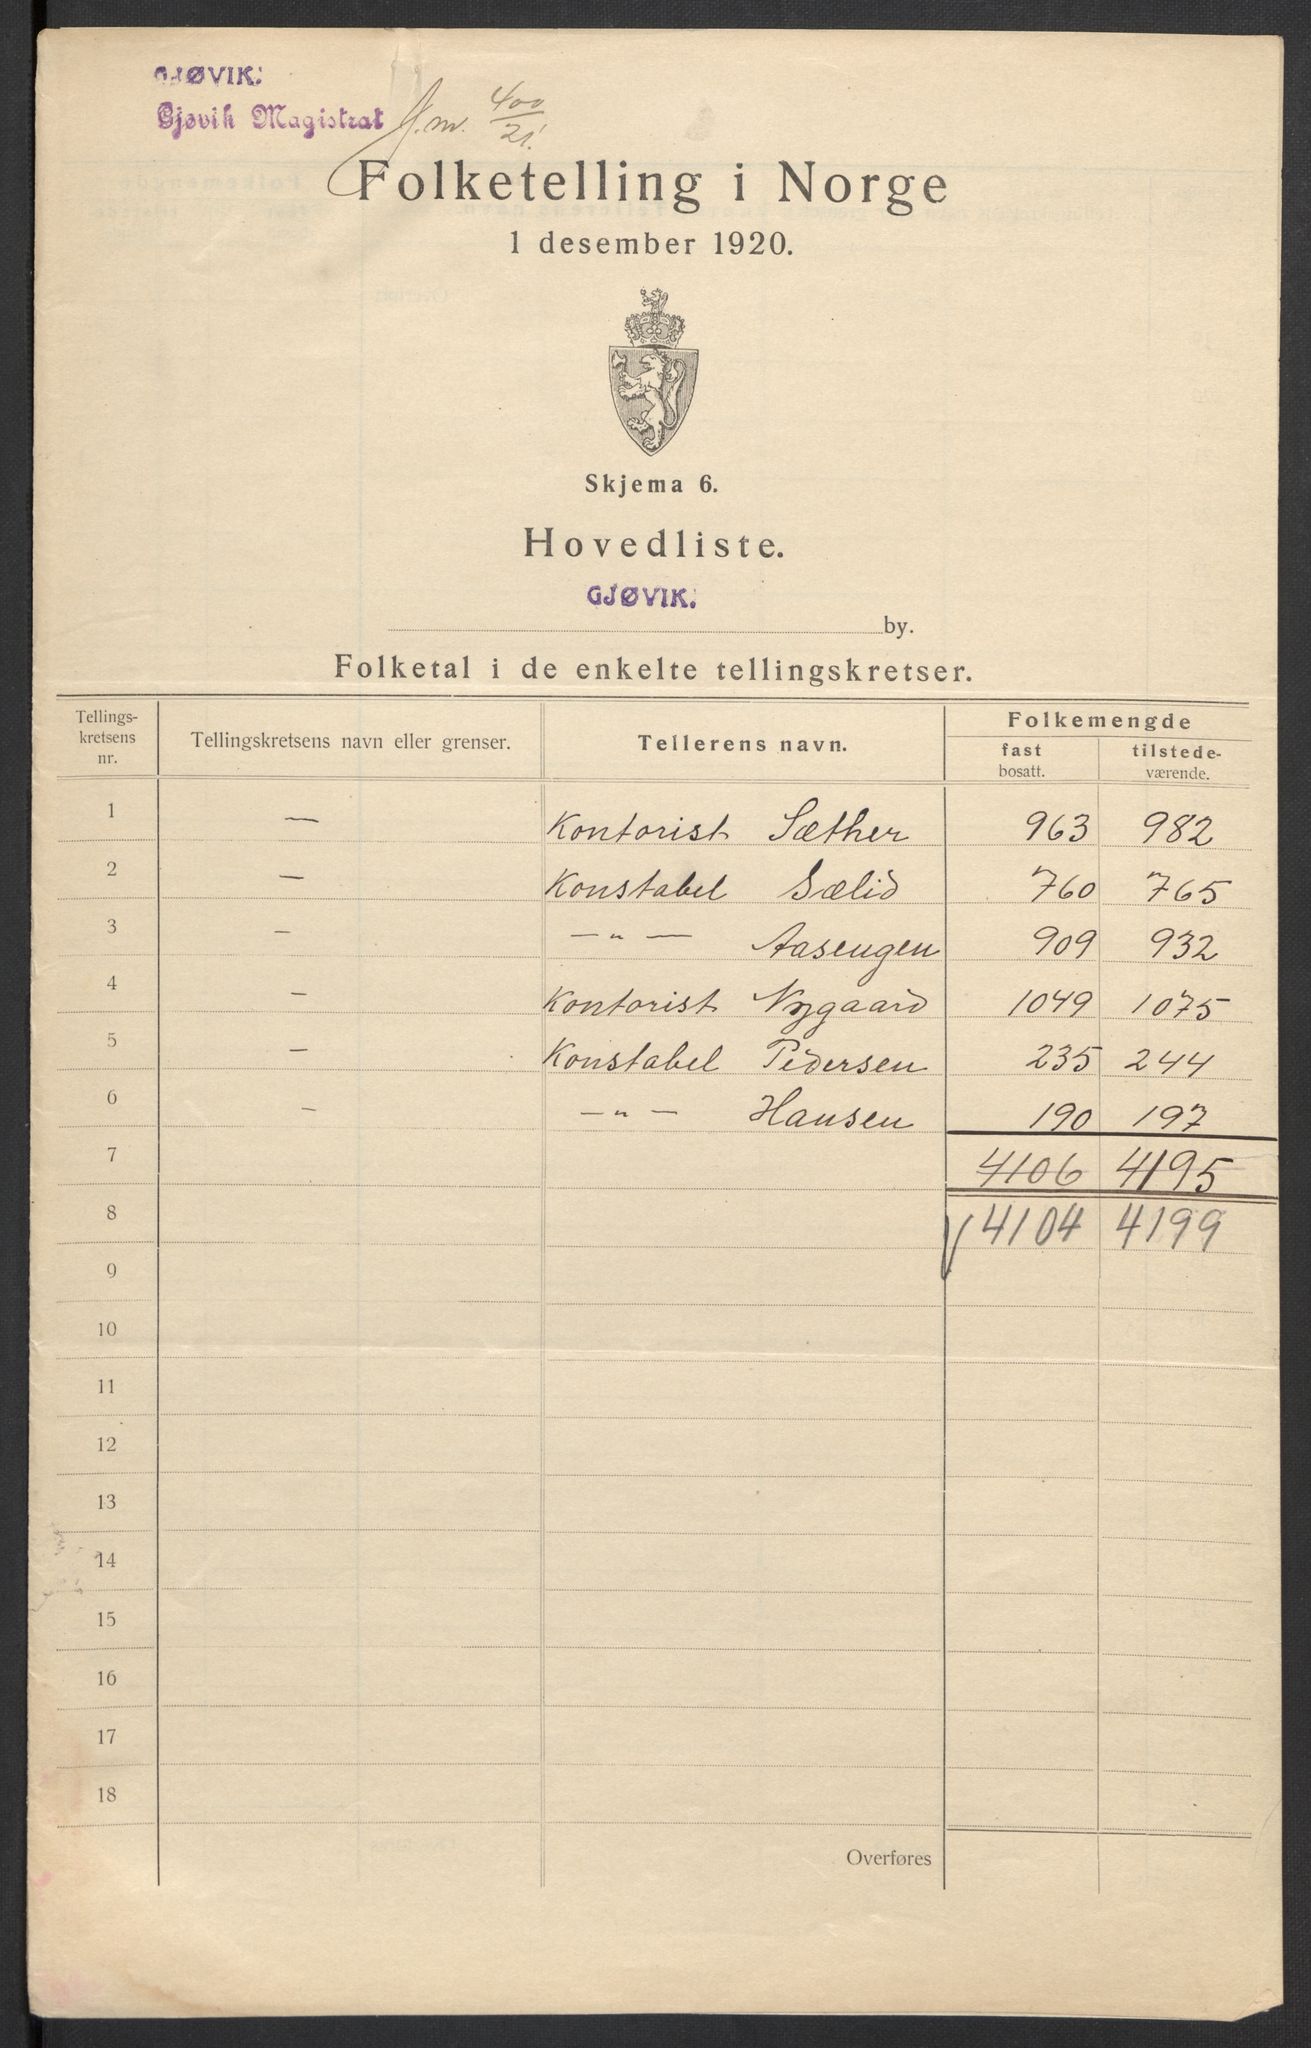 GJØVIK.
Gjøvik Magistrat J.m. 400/21.
Folketelling i Norge
1 desember 1920.
Skjema 6.
Hovedliste.
GJØVIK.
by.
Folketal i de enkelte tellingskretser.
Tellings-kretsens nr. Tellingskretsens navn eller grenser. Tellerens navn. Folkemengde
fast bosatt. tilstede-værende.
1 — Kontorist Sæther 963 982
2 — Konstabel Sælid 760 765
3 — —"— Aasengen 909 932
4 — Kontorist Nygaard 1049 1075
5 — Konstabel Pedersen 235 244
6 — —"— Hansen 190 197
7 4106 4195
8 4104 4199
9
10
11
12
13
14
15
16
17
18
Overføres